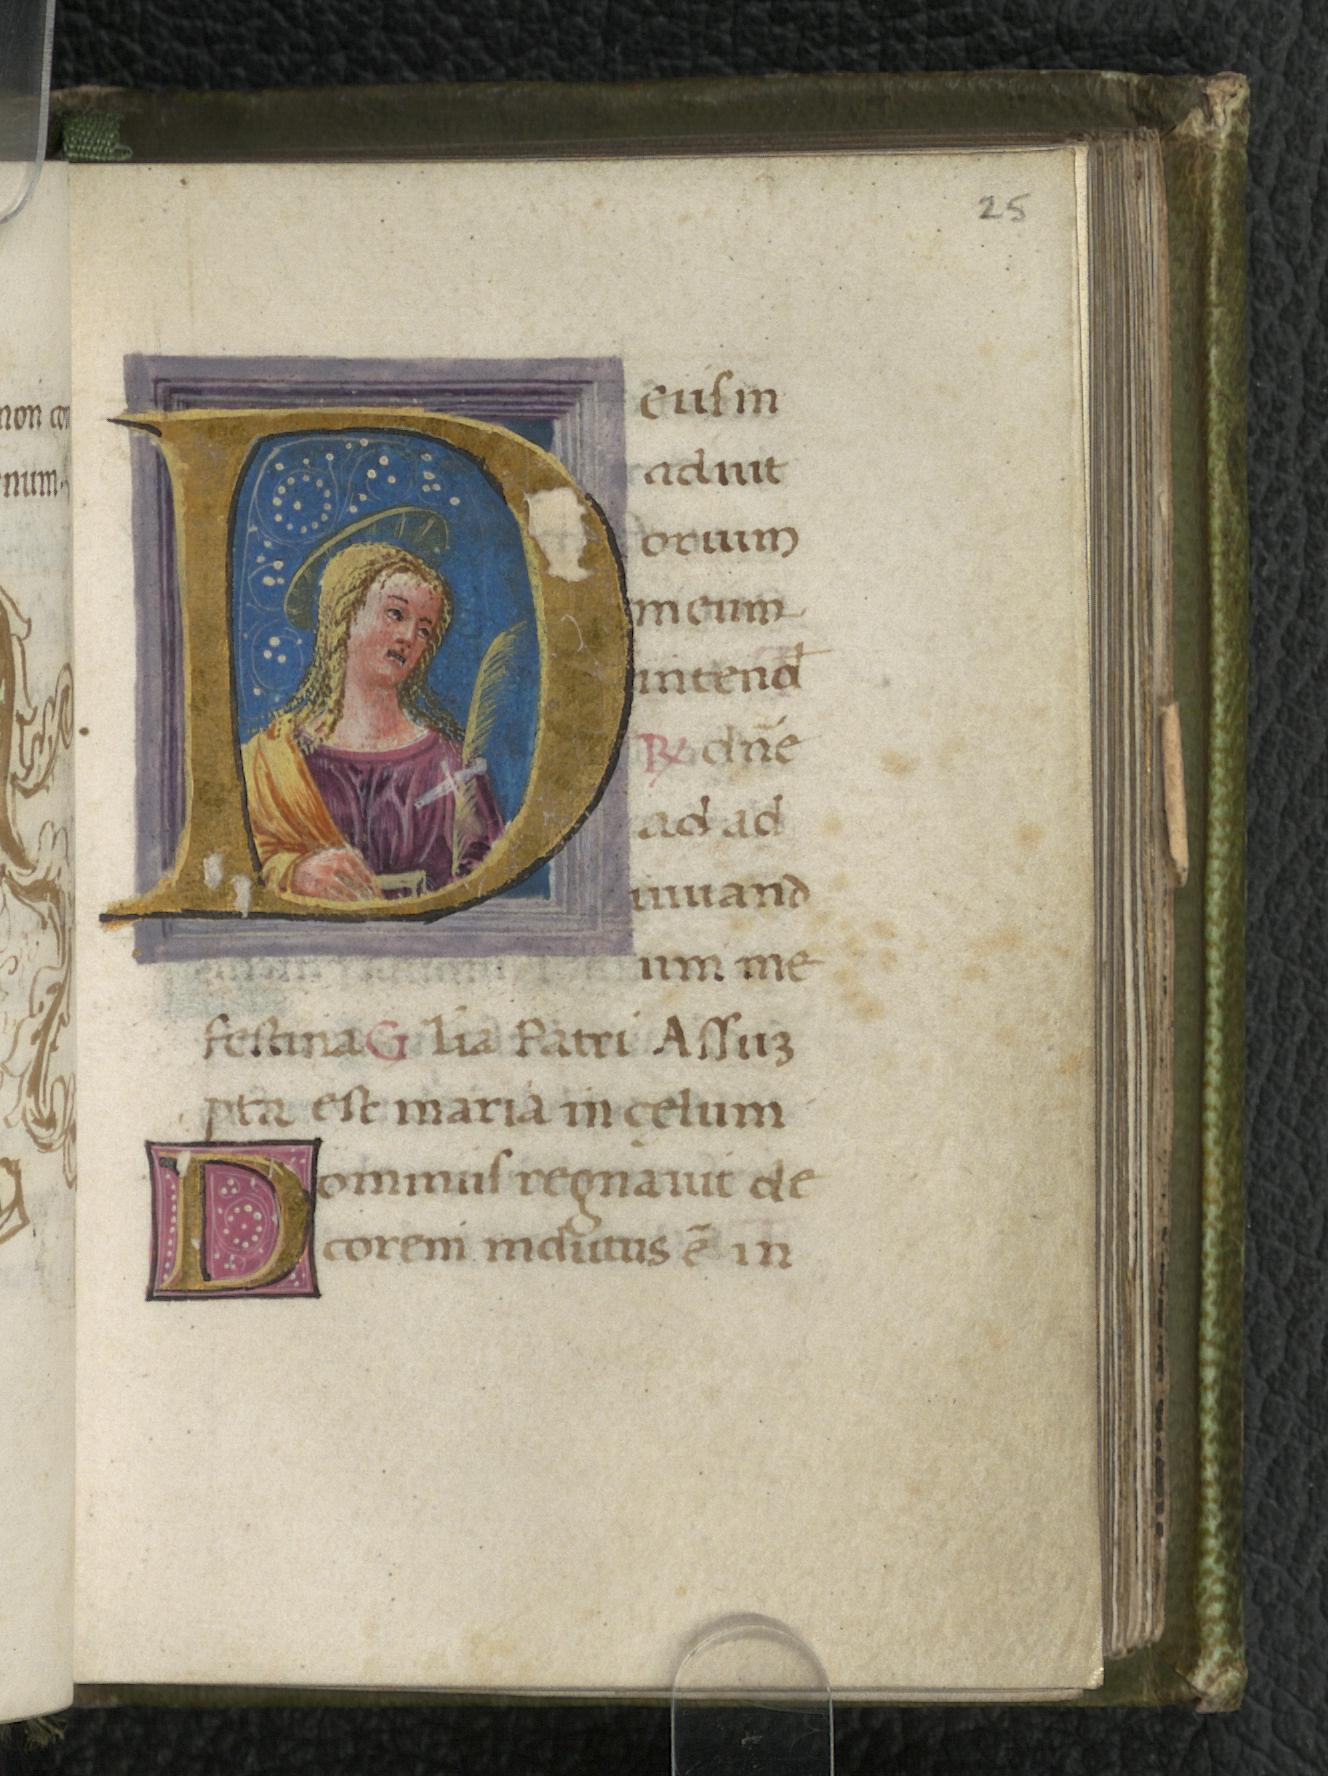 non con
enum
25
Deus in
adiut
orium
meum
intend
R dn̄e
ad ad
iuuand
um me
festina Glia Patri Assuʒ
pta est maria in çelum
Dominus regnauit de
corem indutus ē in